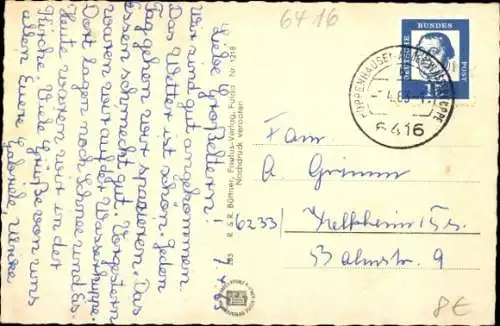 6416
7. 4. 63
Liebe Großeltern!
Wir sind gut angekommen.
Das Wetter ist schön. Jeden
Tag gehen wir spazieren. Das
Essen schmeckt gut. Vorgestern
waren wir auf der Wasserkuppe.
Dort lagen noch Schnee und Eis.
Heute waren wir in der
Kirche. Viele Grüße von uns
allen Eure Gabriele, Ulrike
R. & R. Büttner, Foetus-Verlag, Fulda Nr. 1218
Nachdruck verboten
DEUTSCHE BUNDES POST
6416
Fam.
A. Grimm
6233/ Kelkheim/Ts.
Bahnstr. 9
8€